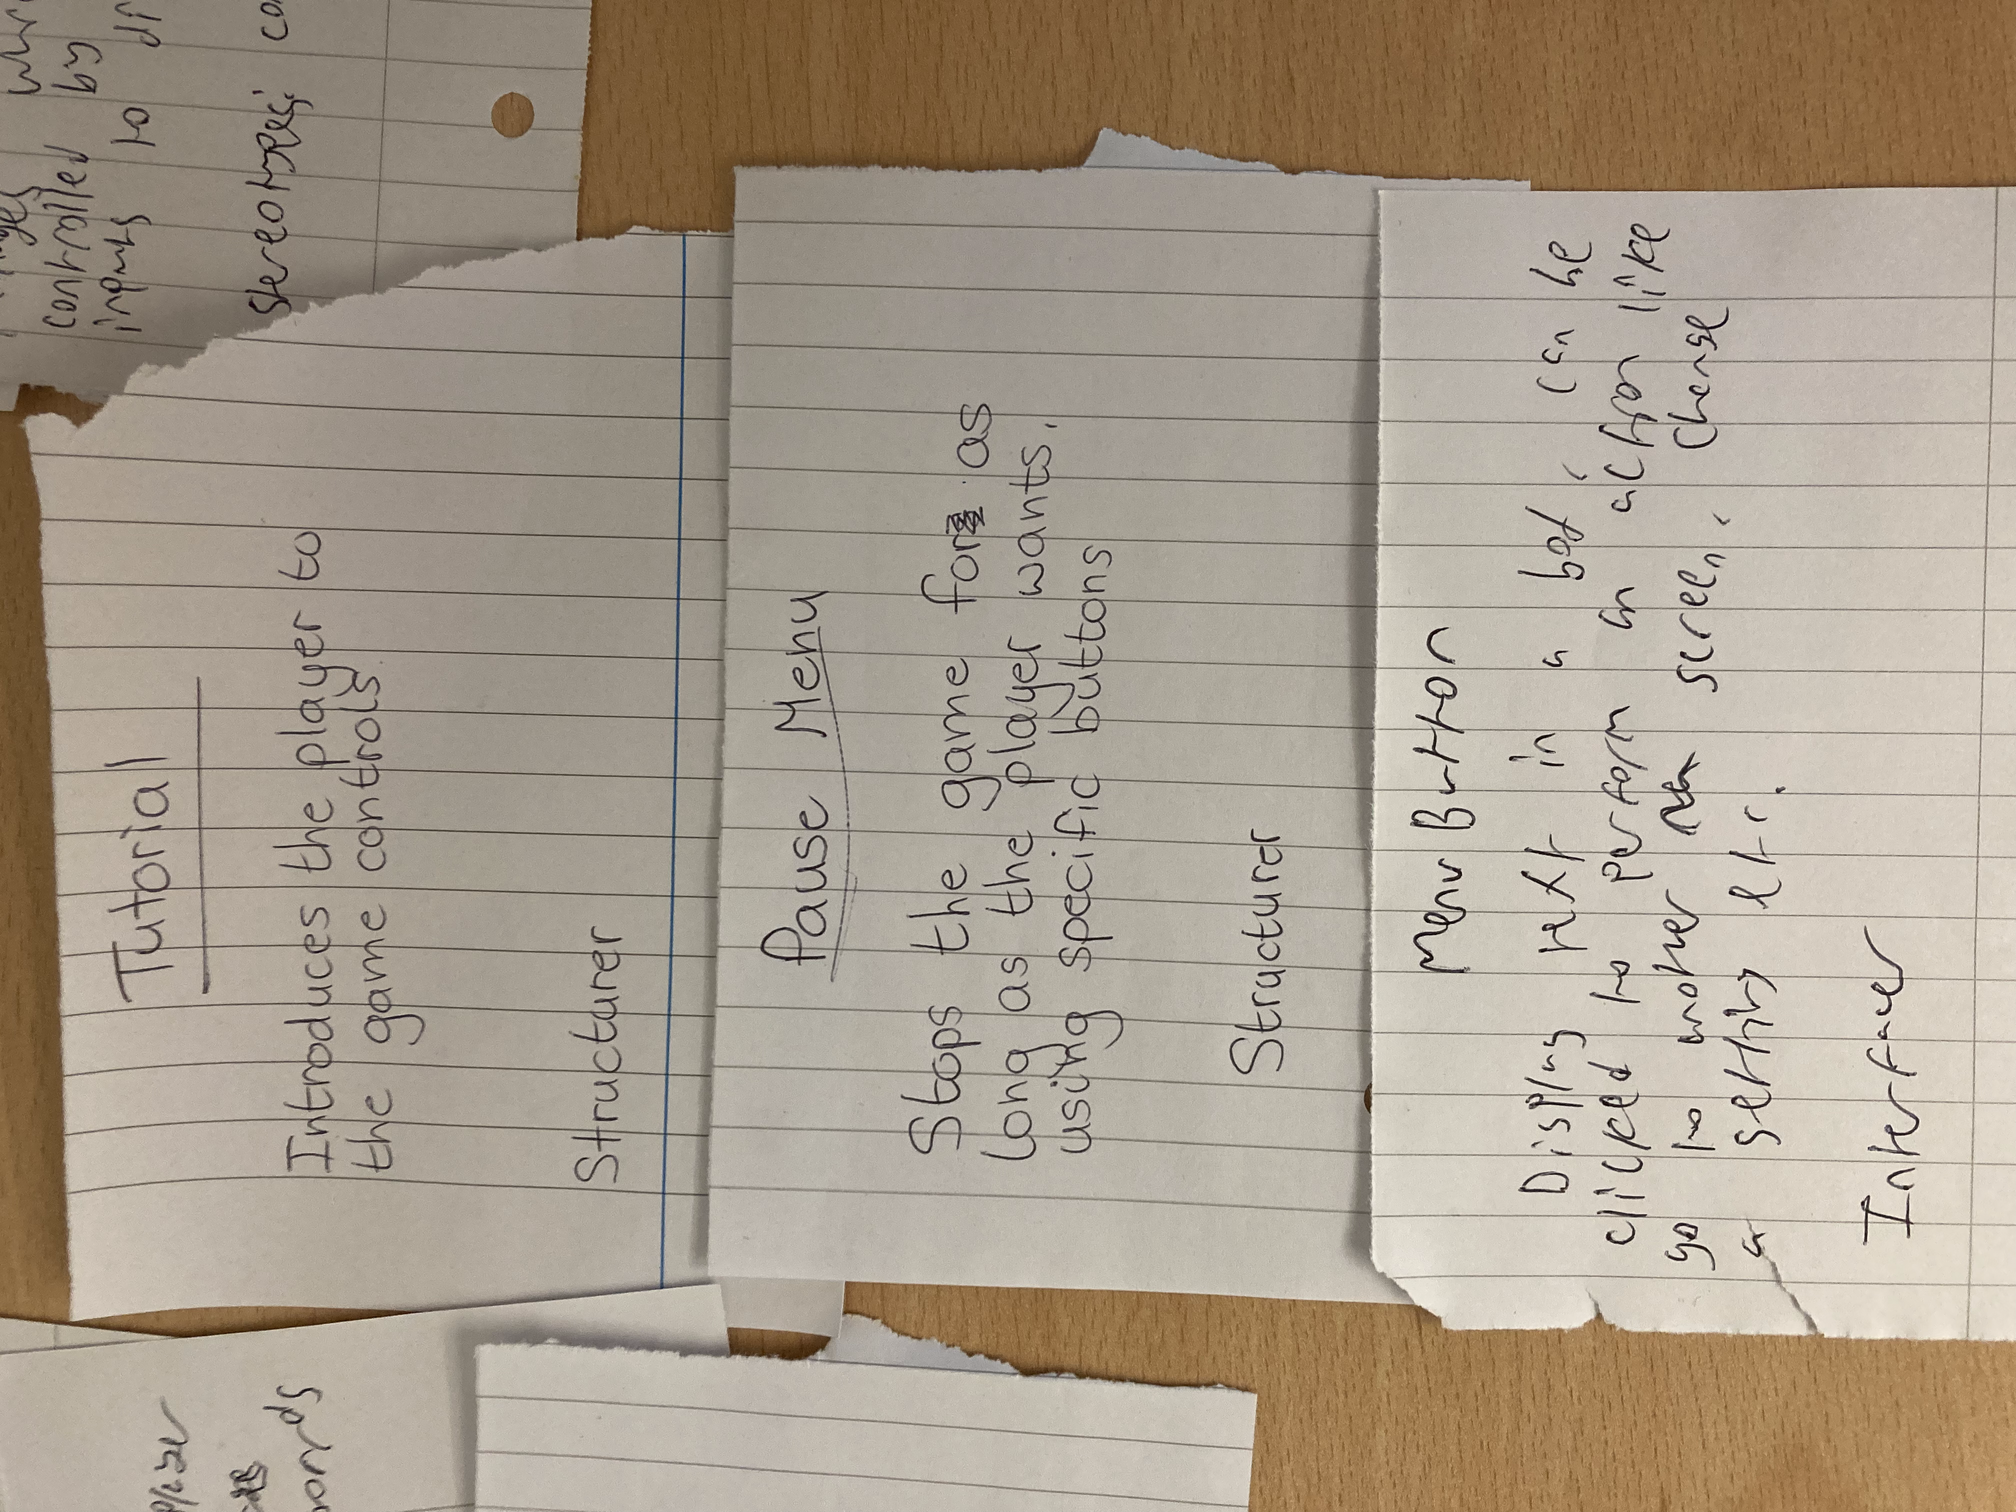 controlled by
inputs to di
stereotype: co
Tutorial
Introduces the player to
the game controls
Structurer
Pause Menu
Stops the game for as
long as the player wants.
using specific buttons
Structurer
Menu Button
Display text in a box, can be
clicked to perform an action like
go to another screen, change
a setting etc.
Interfacer